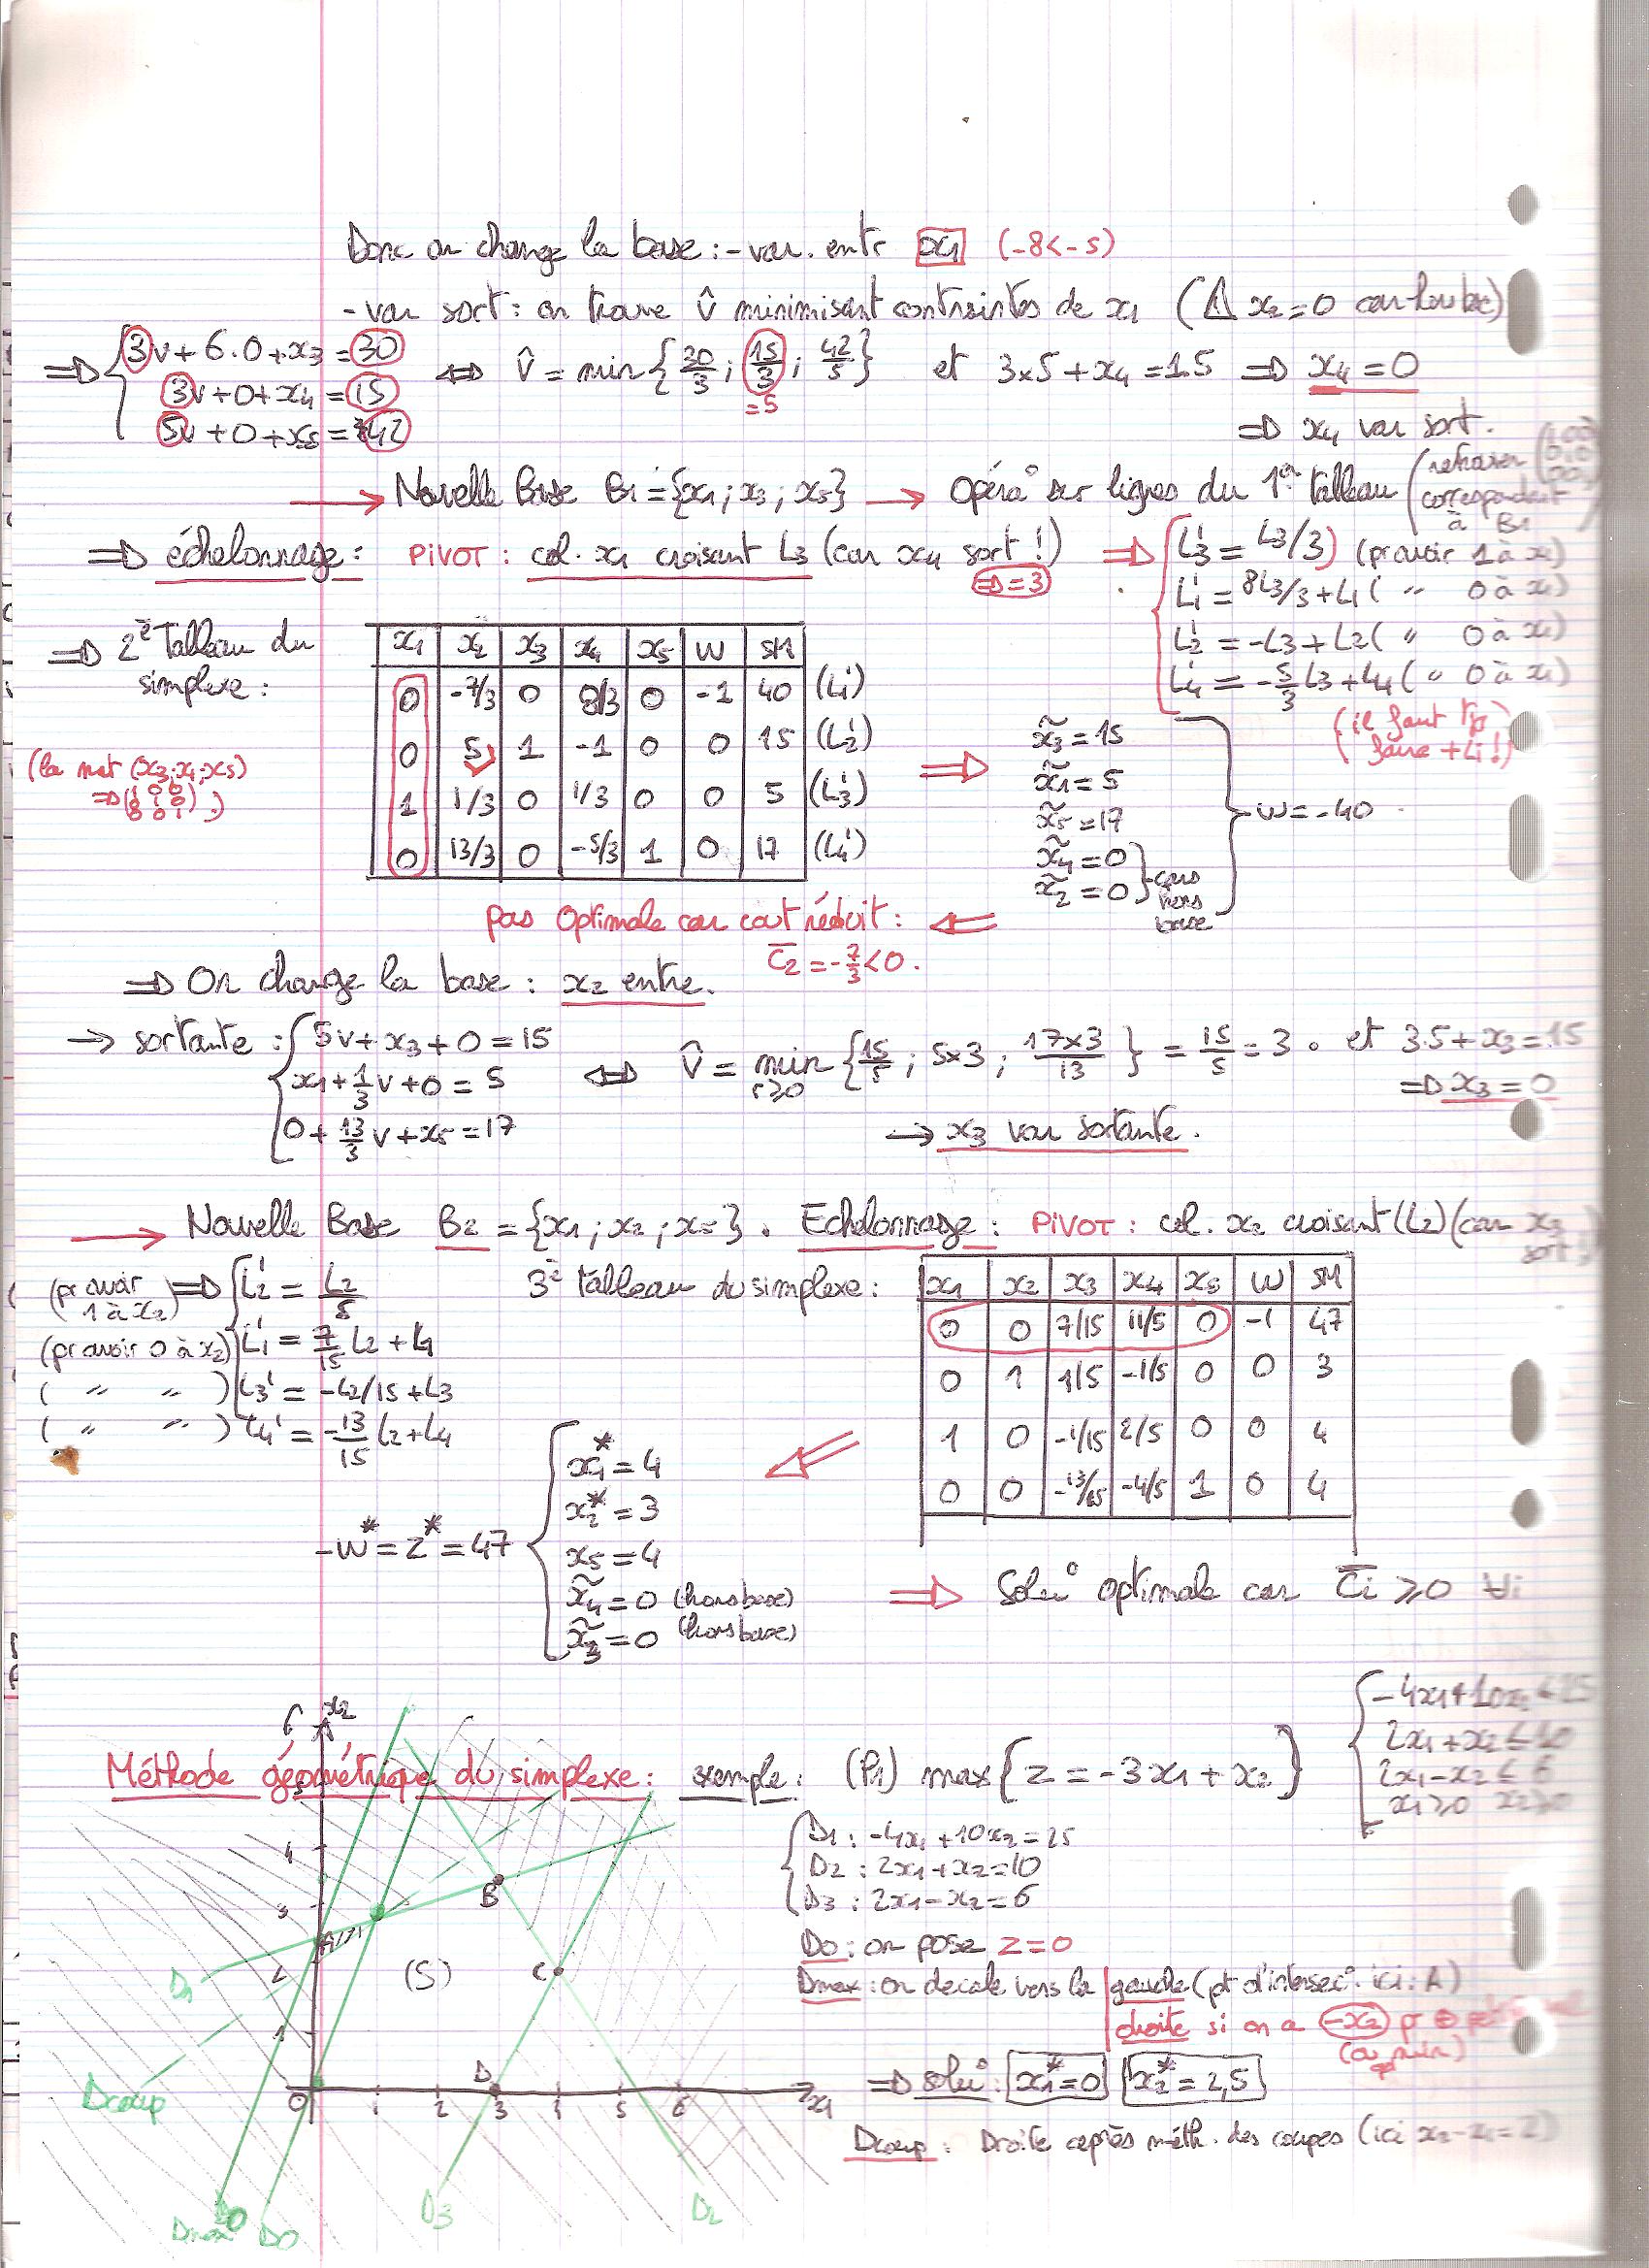 Donc on change la base : - var. entr x1 (-8<-5)
- var sort : on trouve v̂ minimisant contraintes de x1 (⚠ x2=0 car hors base)
=> { 3v + 6.0 + x3 = 30
3v + 0 + x4 = 15
5v + 0 + x5 = 42
<=> v̂ = min { 30/3 ; 15/3 ; 42/5 } et 3x5 + x4 = 15 => x4 = 0
=5
=> x4 var sort.
→ Nouvelle Base B1 = {x1 ; x3 ; x5} → Opéra° sur lignes du 1er tableau (retrouver
correspondant
à B1
=> échelonnage : PIVOT : col. x1 croisant L3 (car x4 sort !) => =3
=> { L'3 = L3/3 (pr avoir 1 à x1)
L'1 = 8L3/3 + L1 ( " 0 à x1)
L'2 = -L3 + L2 ( " 0 à x1)
L'4 = -5/3 L3 + L4 ( " 0 à x1)
(il faut tjs faire + Li !)
=> 2è Tableau du simplexe :
x1 x2 x3 x4 x5 W SM
0 -7/3 0 8/3 0 -1 40 (L'1)
0 5 1 -1 0 0 15 (L'2)
1 1/3 0 1/3 0 0 5 (L'3)
0 13/3 0 -5/3 1 0 17 (L'4)
(la mat (x3, x1, x5)
=> (1 0 0
0 1 0
0 0 1)
=> x̃3 = 15
x̃1 = 5
x̃5 = 17
x̃4 = 0
x̃2 = 0
} cars hors base
} W = -40
pas Optimale car cout réduit : <=
c̄2 = -7/3 < 0.
=> On change la base : x2 entre.
→ sortante : { 5v + x3 + 0 = 15
x1 + 1/3 v + 0 = 5
0 + 13/3 v + x5 = 17
<=> v̂ = min { 15/5 ; 5x3 ; 17x3/13 } = 15/5 = 3 . et 3.5 + x3 = 15
=> x3 = 0
→ x3 var sortante.
→ Nouvelle Base B2 = {x1 ; x2 ; x5}. Echelonnage : PIVOT : col. x2 croisant (L2) (car x3 sort !)
(pr avoir 1 à x2) => { L'2 = L2/5
(pr avoir 0 à x2) L'1 = 7/15 L2 + L1
( " " ) L3' = -L2/15 + L3
( " " ) L4' = -13/15 L2 + L4
3è tableau du simplexe :
x1 x2 x3 x4 x5 W SM
0 0 7/15 11/5 0 -1 47
0 1 1/5 -1/5 0 0 3
1 0 -1/15 2/5 0 0 4
0 0 -13/15 -4/5 1 0 4
-W* = Z* = 47 { x1* = 4
x2* = 3
x5 = 4
x̃4 = 0 (hors base)
x̃3 = 0 (hors base)
=> Solu° optimale car c̄i ≥ 0 ∀i
Méthode géométrique du simplexe : exemple : (P1) max { z = -3x1 + x2 }
{ -4x1 + 10x2 ≤ 25
2x1 + x2 ≤ 10
2x1 - x2 ≤ 6
x1 ≥ 0 x2 ≥ 0
{ D1 : -4x1 + 10x2 = 25
D2 : 2x1 + x2 = 10
D3 : 2x1 - x2 = 6
D0 : on pose z = 0
Dmax : on decale vers la gauche (pt d'intersec° ici : A)
droite si on a -x2 pr
(ou min)
=> solu° : x1* = 0 x2* = 2,5
Dcoup : Droite après méth. des coupes (ici x2 - x1 = 2)
x2
4
3
2
1
0 1 2 3 4 5 6 x1
A
B
C
D
(S)
D1
Dcoup
Dmax
D0
D3
D2